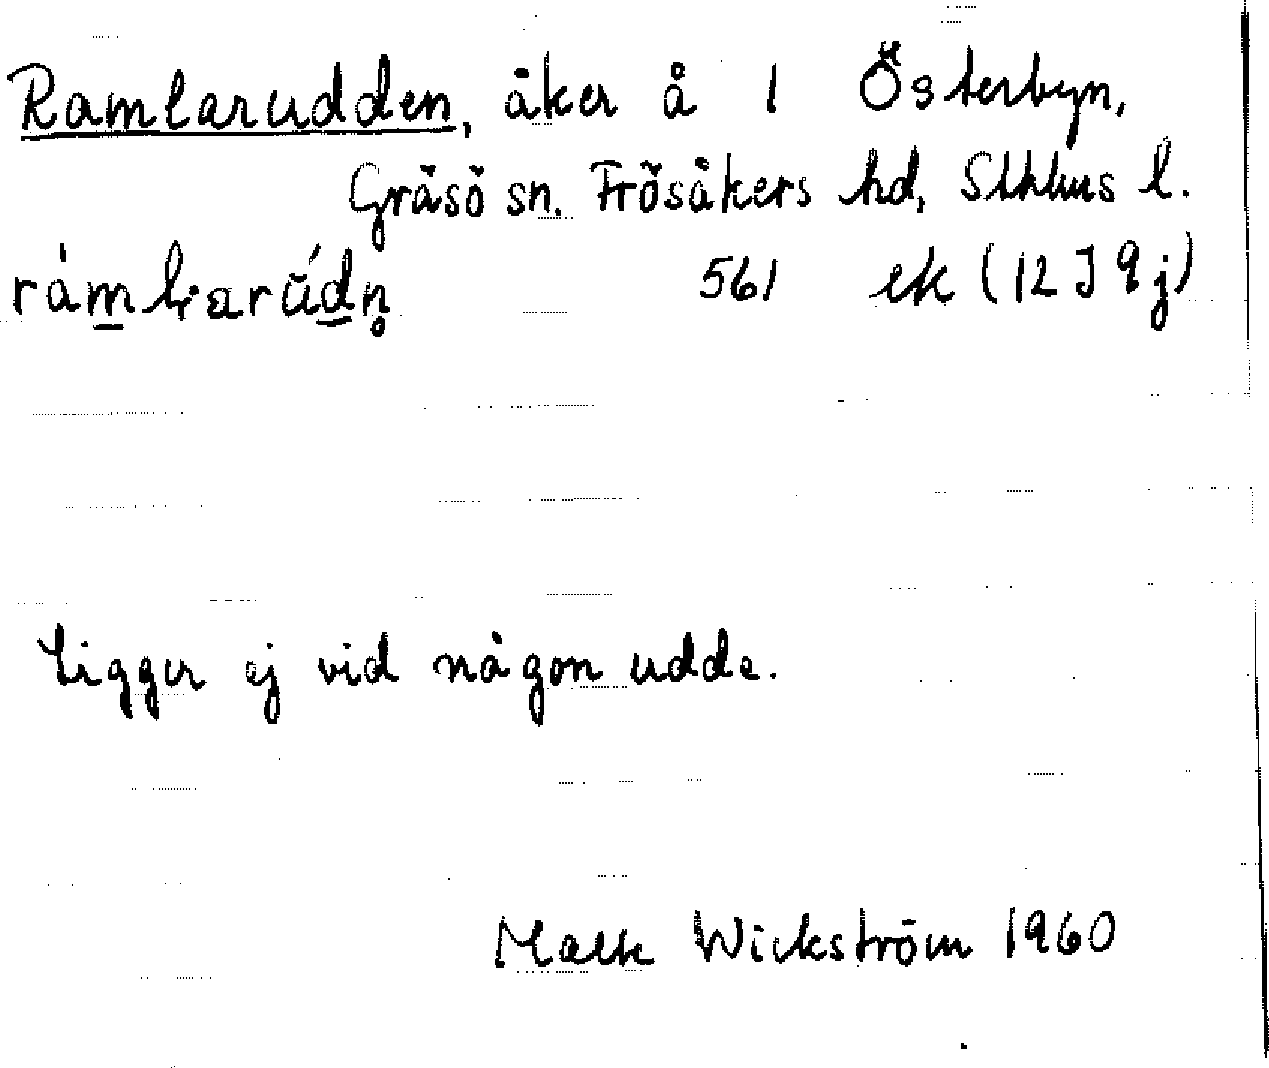 Ramlarudden, åker å 1 Österbyn,
Gräsö sn. Frösåkers hd, Sthlms l.
561 ek (12 I 9 j)
Ligger ej vid någon udde.
Wickström 1960